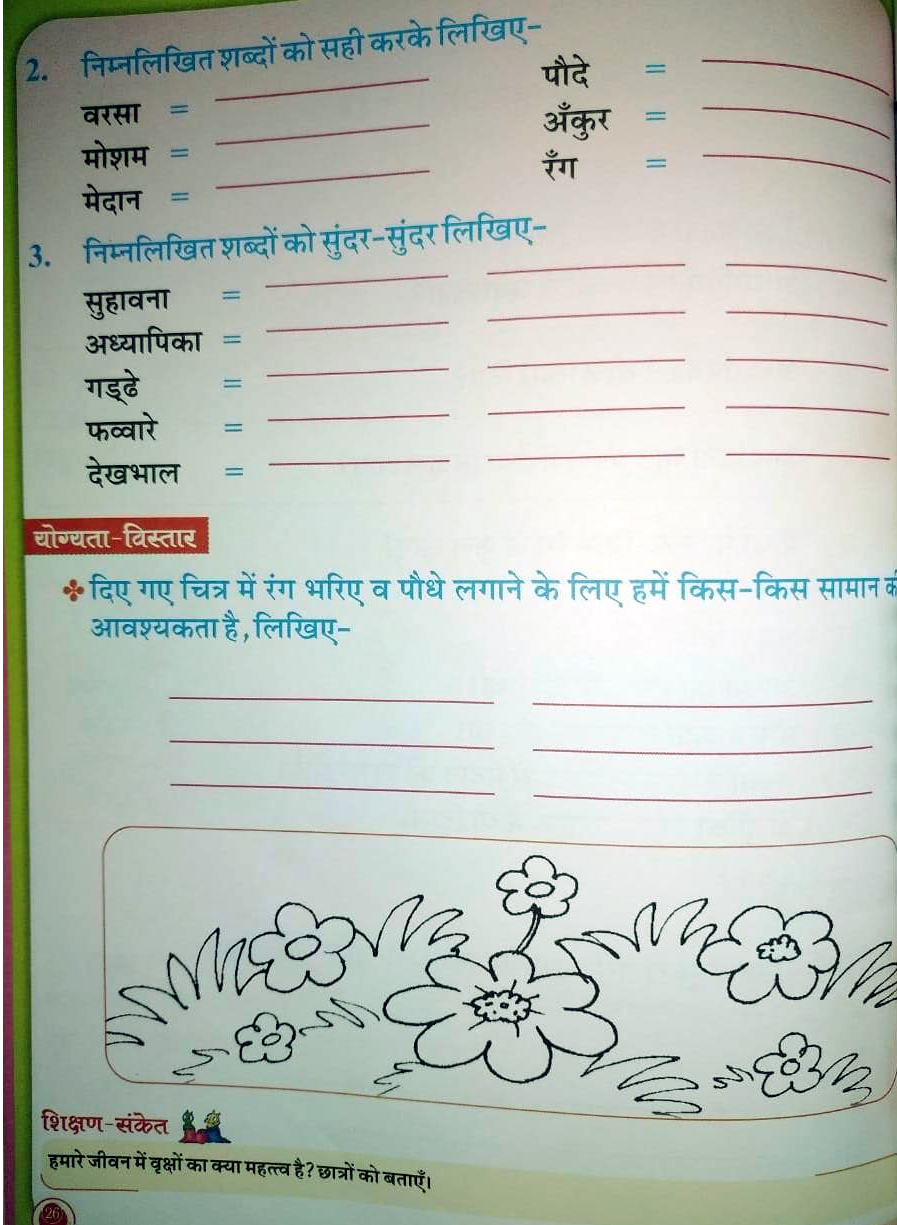 2. निम्नलिखित शब्दों को सही करके लिखिए-
वरसा =
मोशम =
मेदान =
पौदे =
अँकुर =
रँग =
3. निम्नलिखित शब्दों को सुंदर-सुंदर लिखिए-
सुहावना =
अध्यापिका =
गड्ढे =
फव्वारे =
देखभाल =
योग्यता-विस्तार
दिए गए चित्र में रंग भरिए व पौधे लगाने के लिए हमें किस-किस सामान
आवश्यकता है, लिखिए-
शिक्षण-संकेत
हमारे जीवन में वृक्षों का क्या महत्त्व है? छात्रों को बताएँ।
26